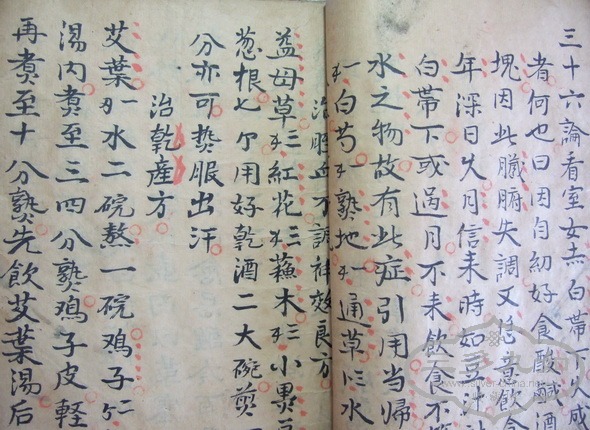 三十六論看室女赤白帶下久成
者何也曰因自幼好食酸鹹酒
塊因此臟腑失調又飲食
年深日久月信來時如豆汁
白帶下或過月不來飲食不
水之物故有此症引用当歸
一白芍一熟地一通草水
治不調神效良方
益母草三紅花三蘇木三小黑豆
葱根七个用好乾酒二大碗煎
分亦可熱服出汗
治乾產方
艾葉一水二碗熬一碗鳮子二
湯内煮至三四分熟鳮子皮軽
再煮至十分熟先飲艾葉湯后